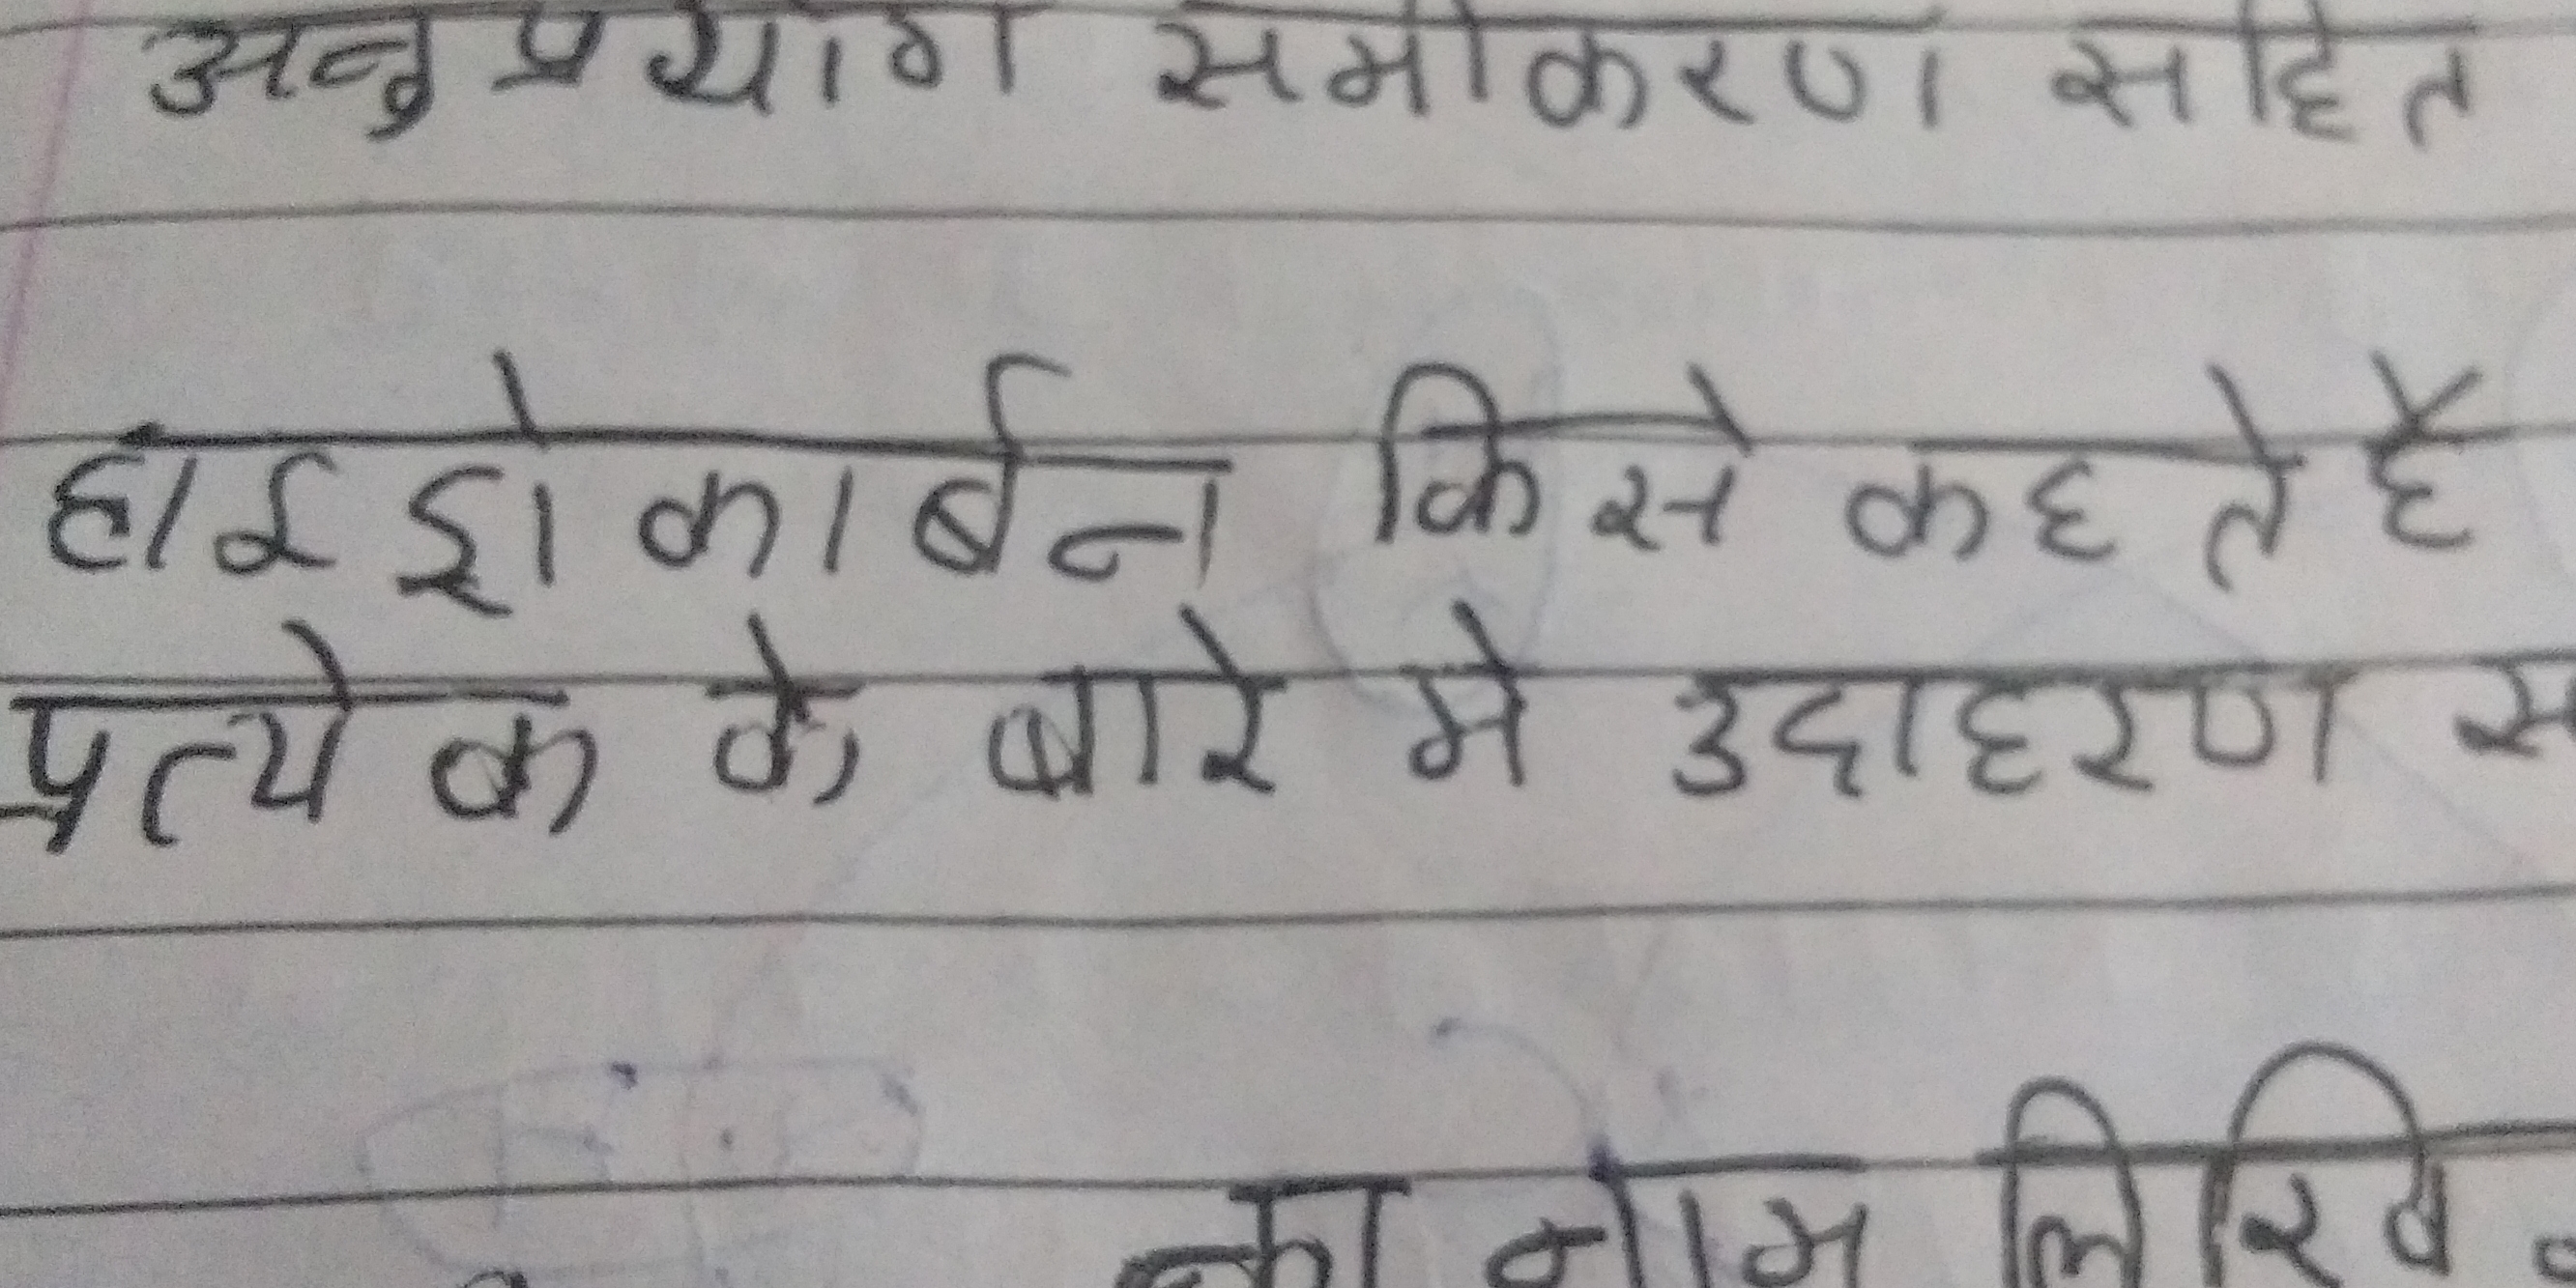 अनुप्रयोग समीकरण सहित
हाइड्रोकार्बन किसे कहते है
प्रत्येक के बारे मे उदाहरण स
का नाम लिखि